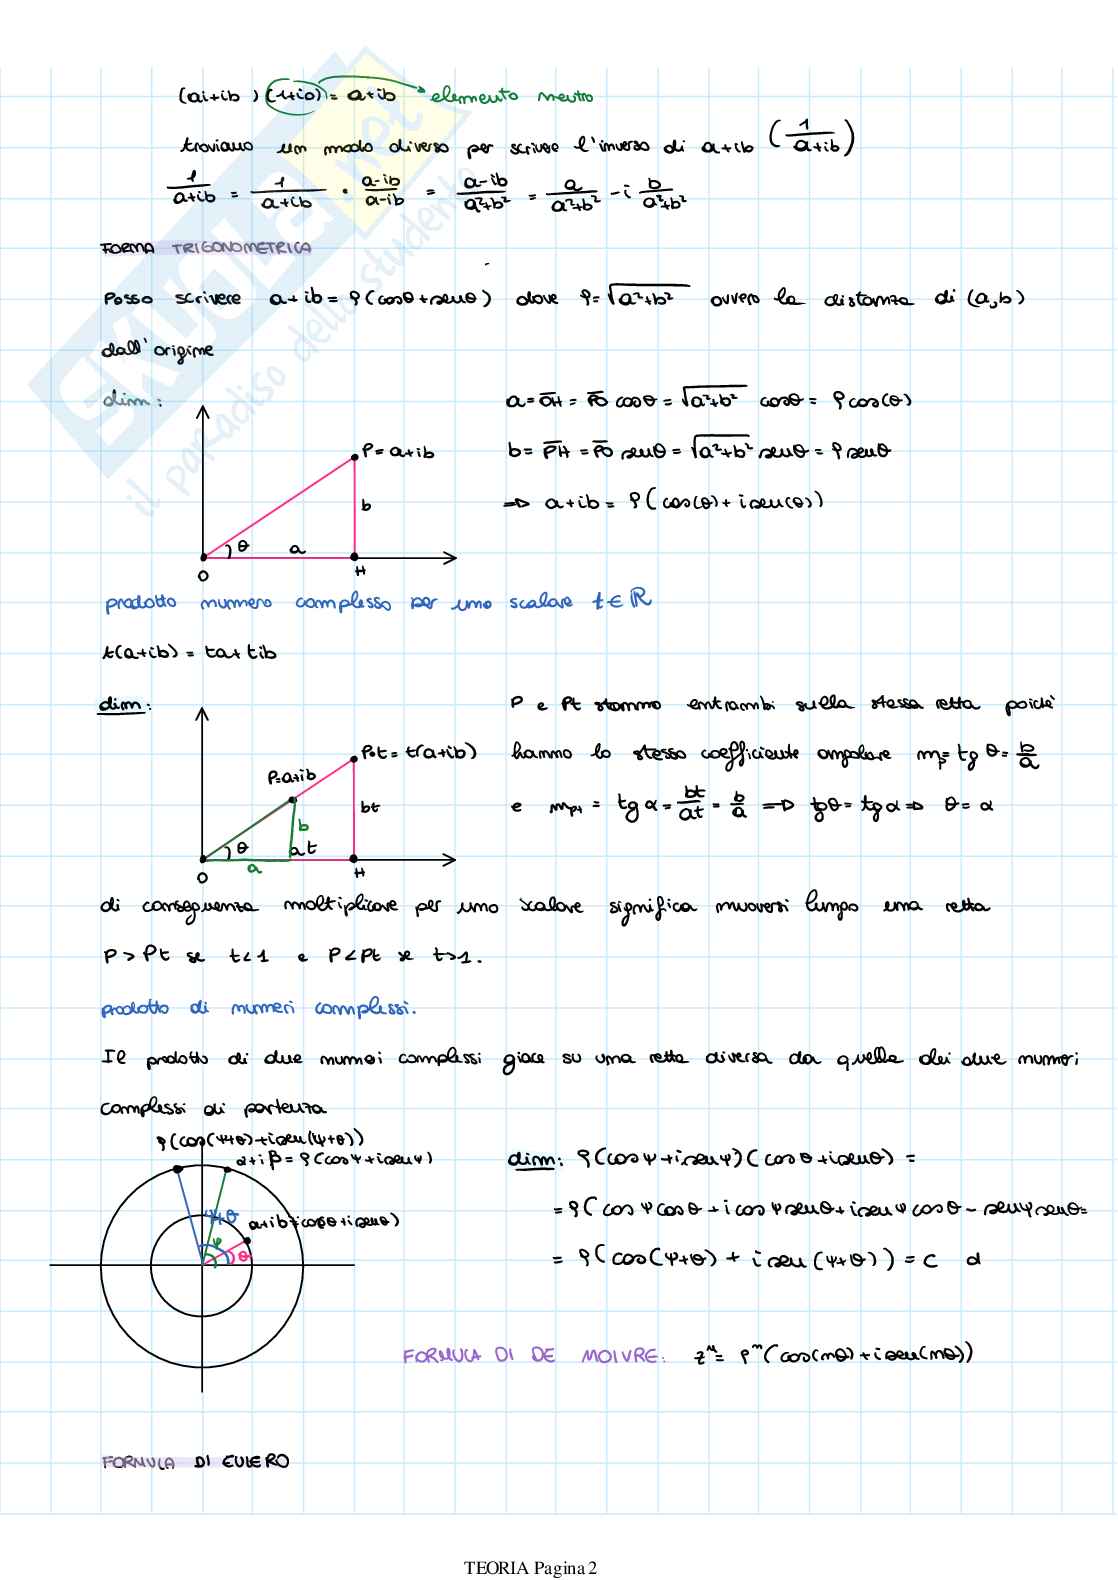 (ai+ib) (1+i0) = a+ib elemento neutro
troviamo un modo diverso per scrivere l'inverso di a+ib (1/(a+ib))
1/(a+ib) = 1/(a+ib) · (a-ib)/(a-ib) = (a-ib)/(a²+b²) = a/(a²+b²) - i b/(a²+b²)
FORMA TRIGONOMETRICA
Posso scrivere a+ib = ρ(cosθ+senθ) dove ρ=√(a²+b²) ovvero la distanza di (a,b)
dall'origine
dim:
a = OH = PO cosθ = √(a²+b²) cosθ = ρcos(θ)
P = a+ib
b = PH = PO senθ = √(a²+b²) senθ = ρ senθ
b
=> a+ib = ρ(cos(θ)+isen(θ))
θ a
O H
prodotto numero complesso per uno scalare t∈ℝ
t(a+ib) = ta+tib
dim:
P e Pt stanno entrambi sulla stessa retta poichè
P·t = t(a+ib)
hanno lo stesso coefficiente angolare mp= tg θ = b/a
P=a+ib
bt
e mpt = tg α = bt/at = b/a => tgθ = tgα => θ = α
b
θ at
a
O H
di conseguenza moltiplicare per uno scalare significa muoversi lungo una retta
P > Pt se t<1 e P<Pt se t>1.
prodotto di numeri complessi.
Il prodotto di due numeri complessi giace su una retta diversa da quella dei due numeri
complessi di partenza
ρ(cos(ψ+θ)+isen(ψ+θ))
α+iβ = ρ(cosψ+isenψ)
dim: ρ(cosψ+isenψ)(cosθ+isenθ) =
ψ+θ a+ib=(cosθ+isenθ)
=ρ(cosψcosθ+icosψsenθ+isenψcosθ-senψsenθ=
ψ θ
= ρ(cos(ψ+θ) + isen(ψ+θ)) = c d
FORMULA DI DE MOIVRE: zⁿ= ρⁿ(cos(nθ)+isen(nθ))
FORMULA DI EULERO
TEORIA Pagina 2
SKUOLA.net
il paradiso dello studente